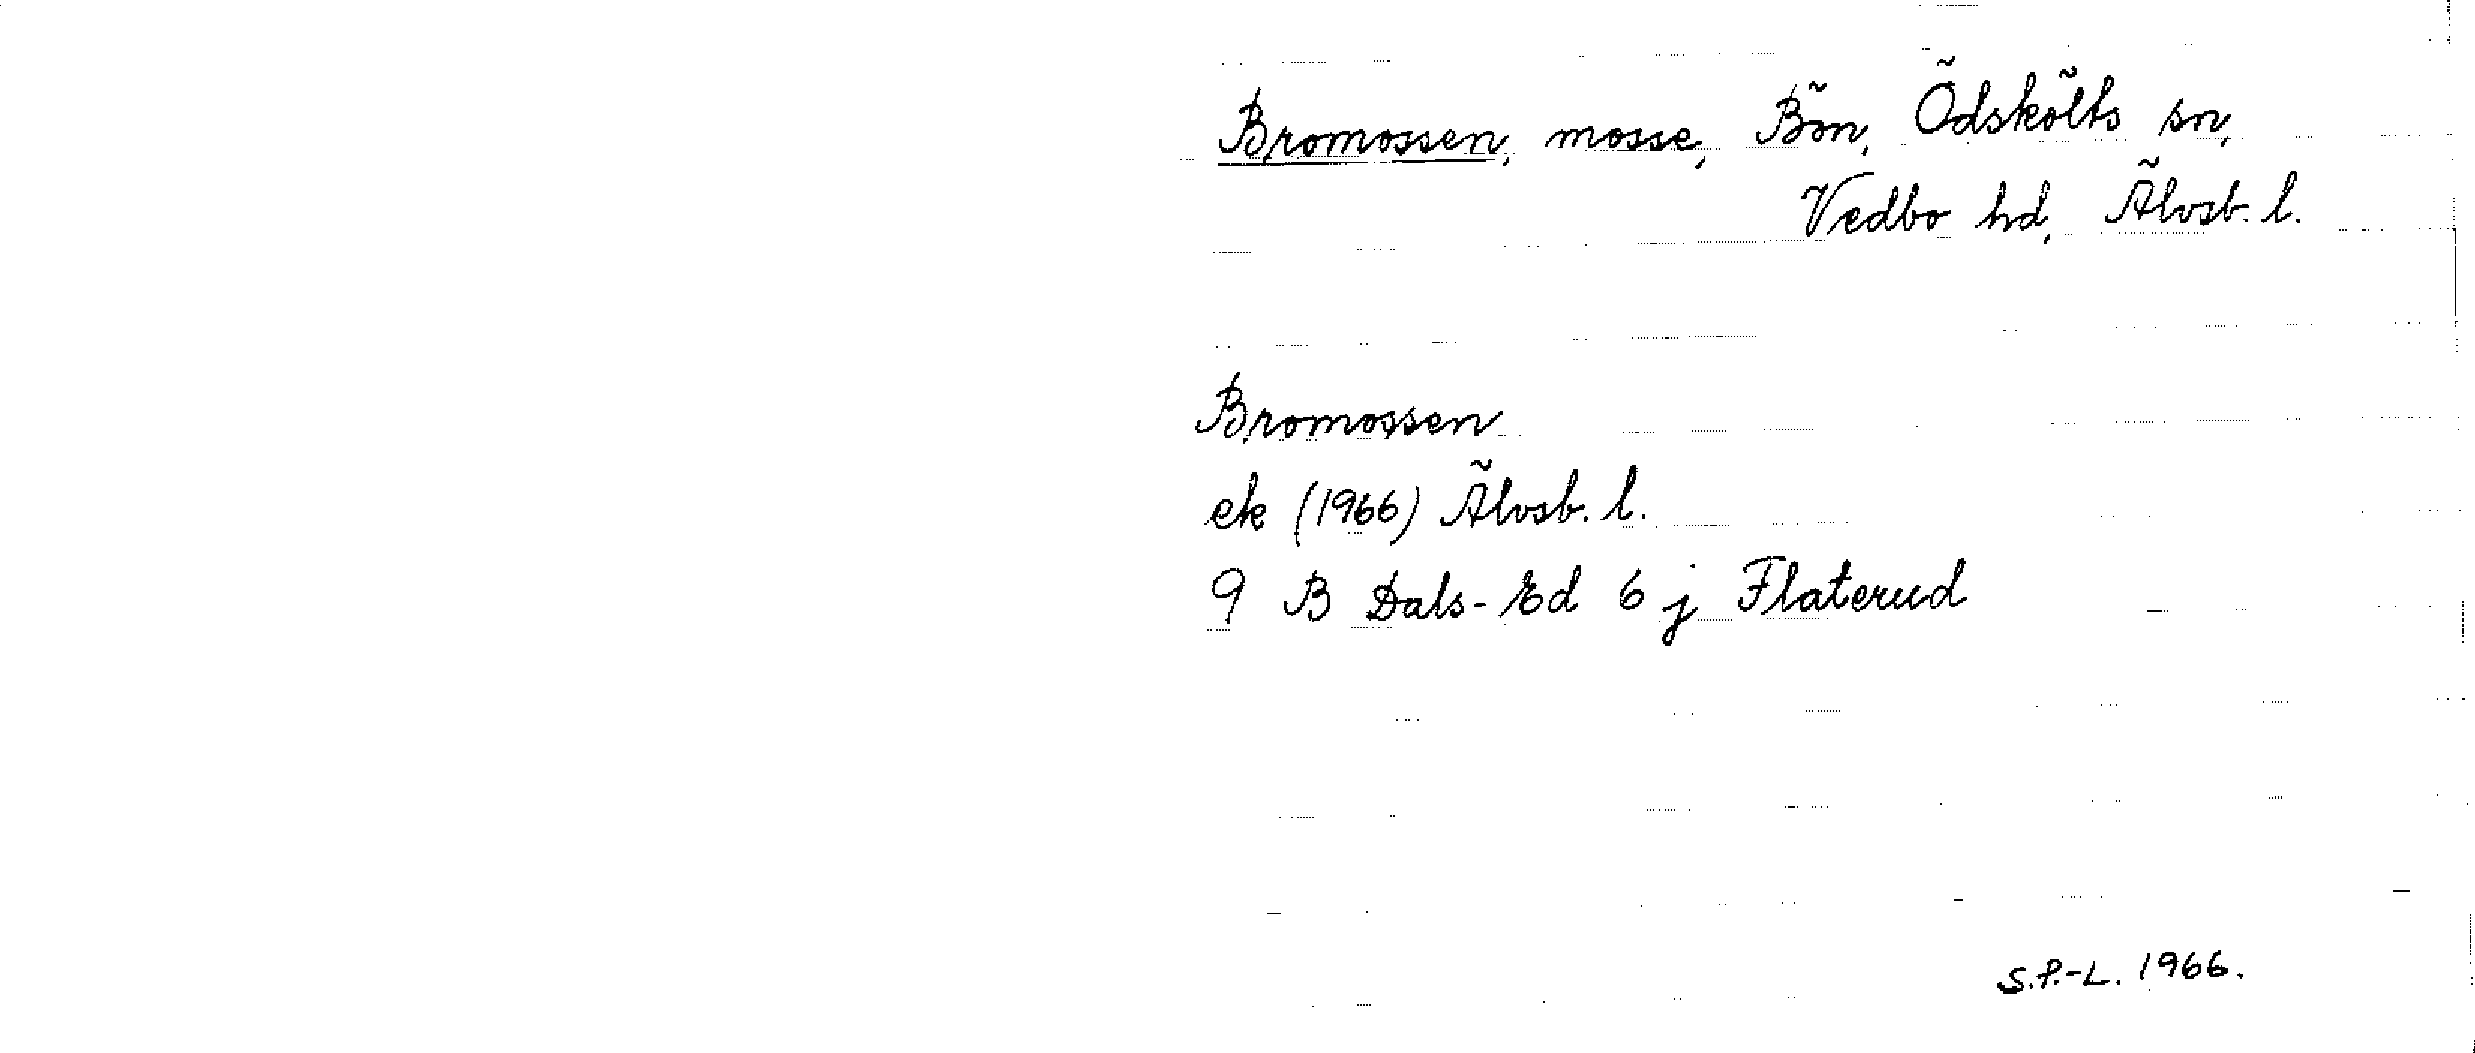 Bromossen, mosse, Bön, Ödskölts sn,
Vedbo hd, Älvsb. l.
Bromossen
ek (1966) Älvsb. l.
9 B Dals-Ed 6 j Flaterud
S.P.-L. 1966.